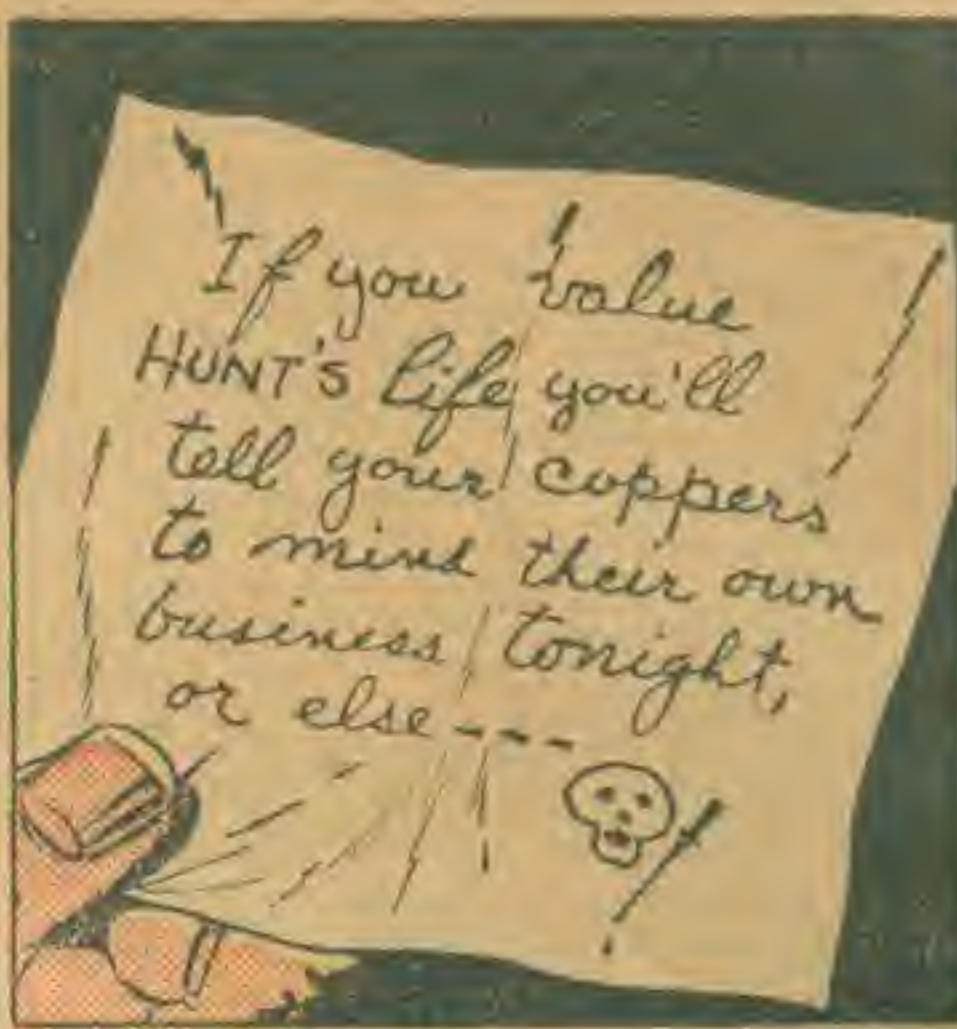 If you value
HUNT'S life you'll
tell your coppers
to mind their own
business tonight,
or else ----